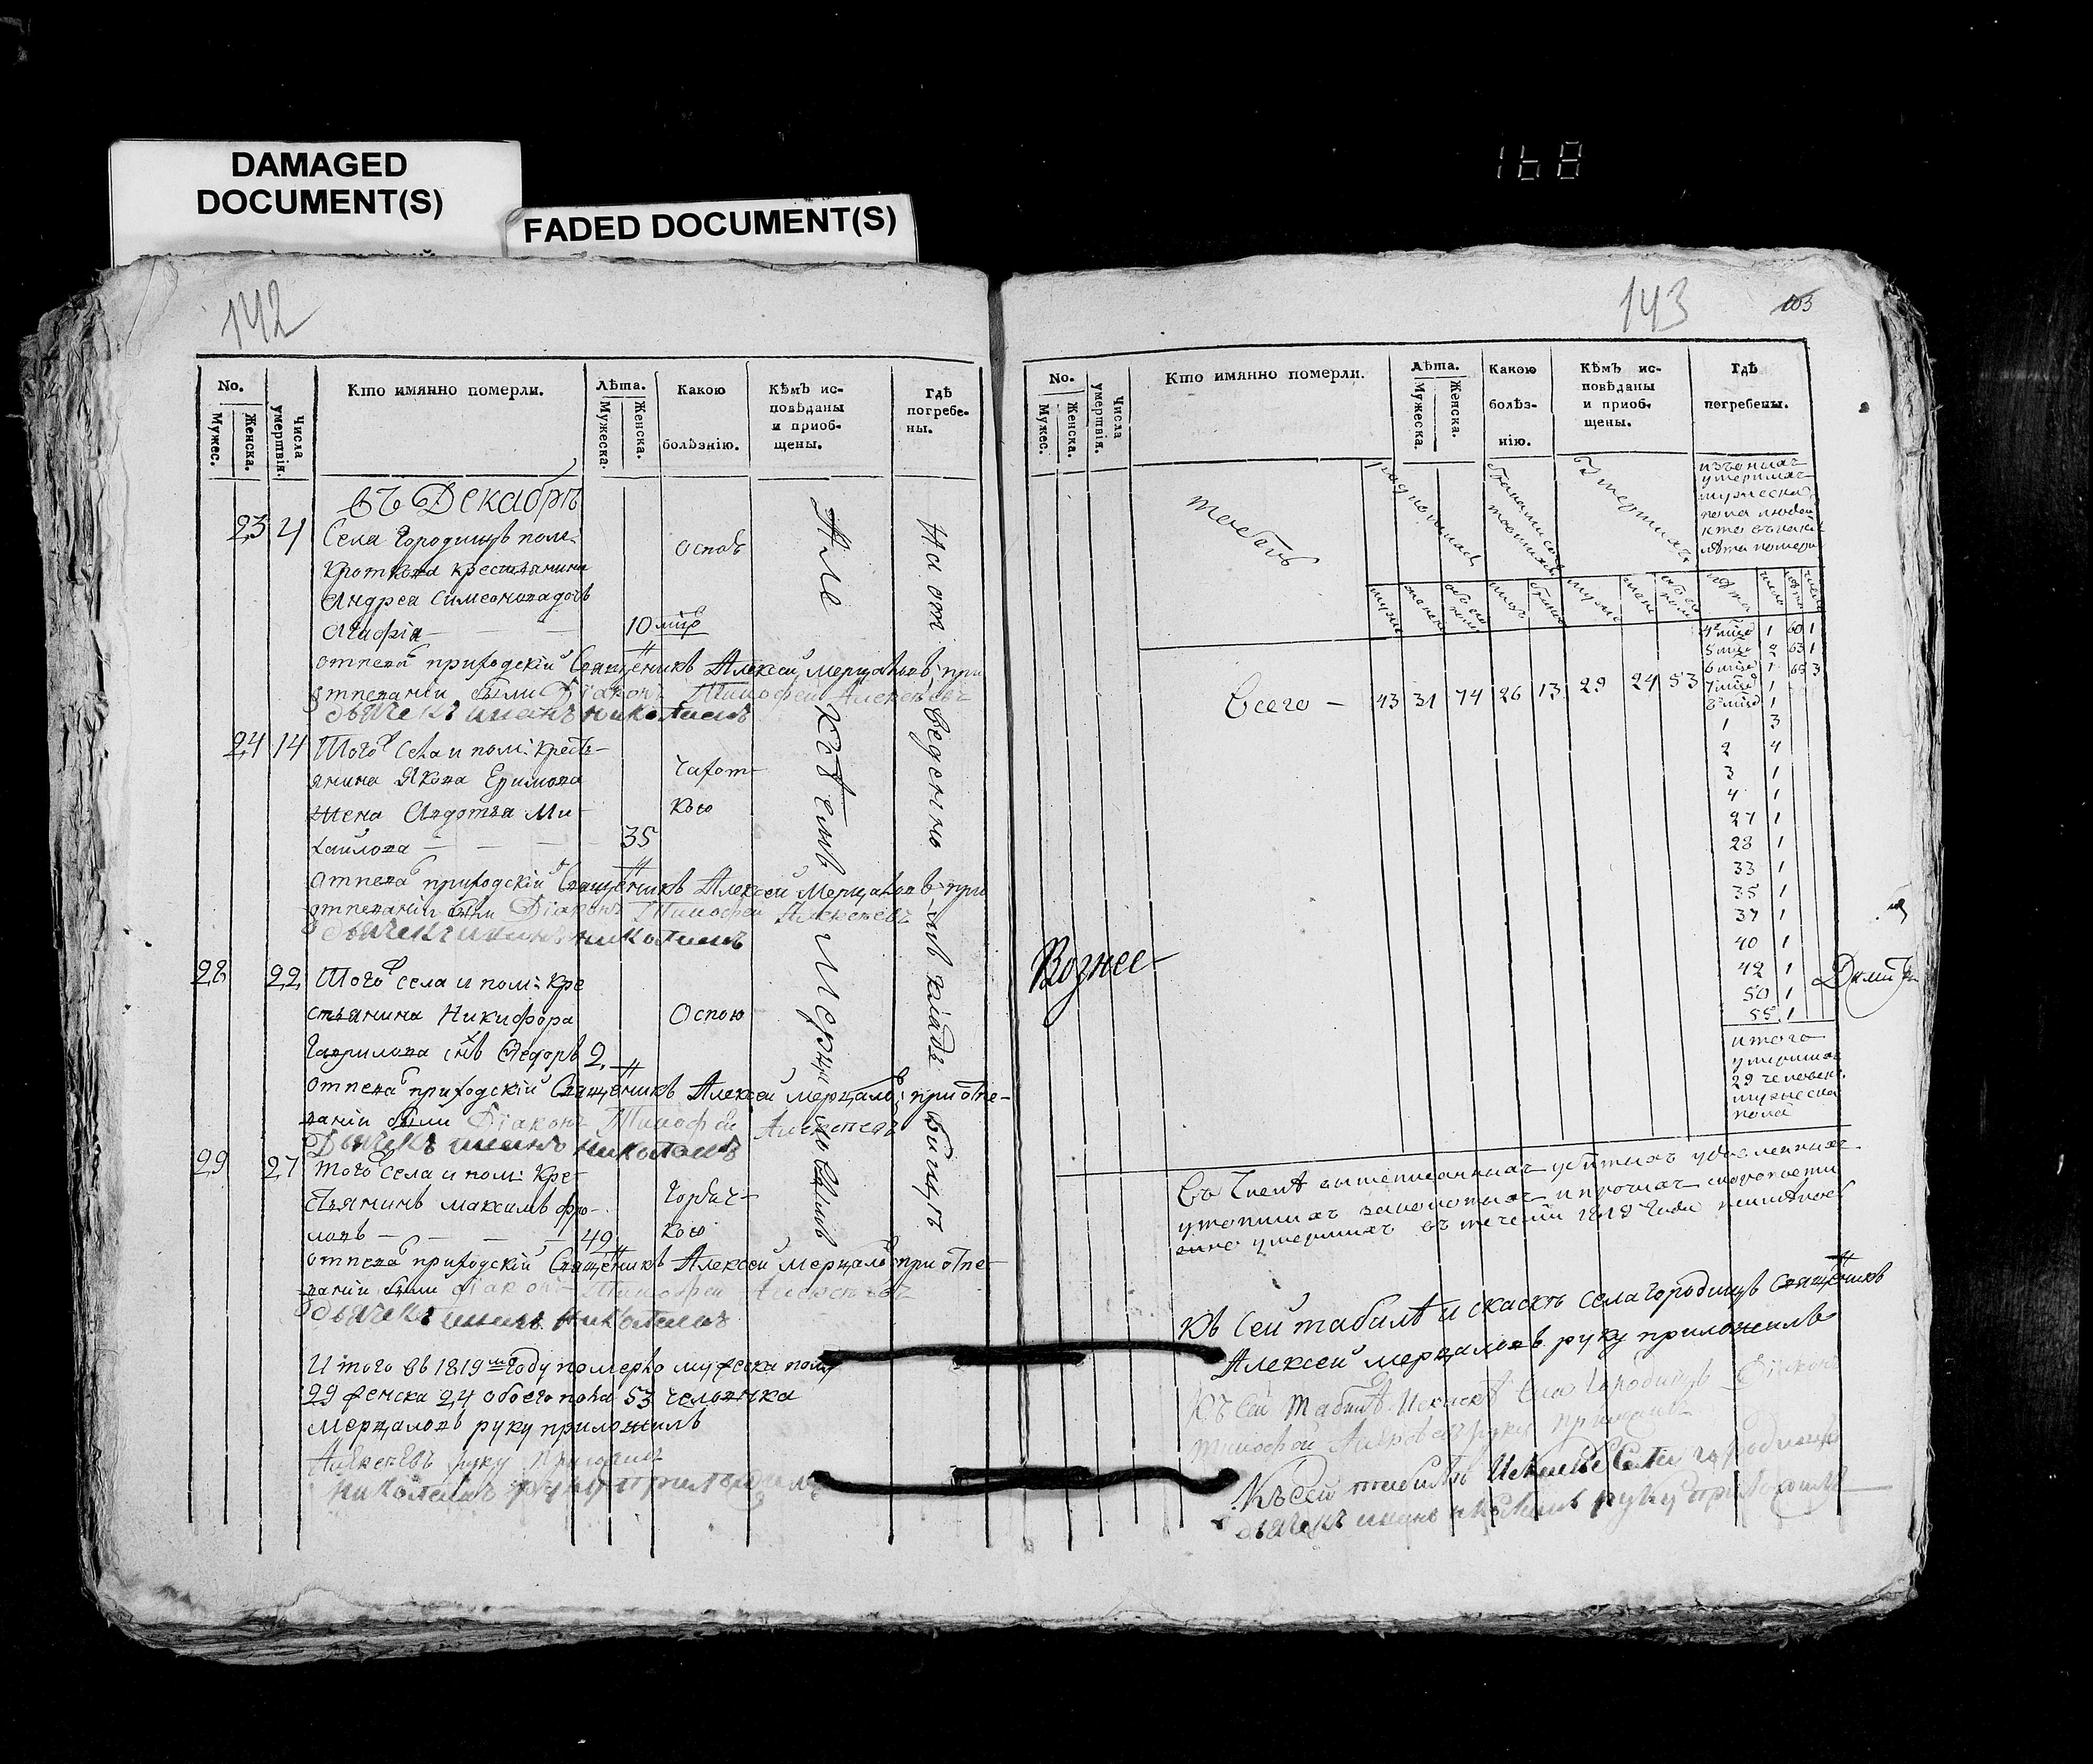 DAMAGED
DOCUMENT(S)
FADED DOCUMENT(S)
168
142
No.
Мужес.
Женска.
Числа умертвія.
Кто имянно померли.
Лѣта.
Мужеска.
Женска.
Какою
болѣзнію.
Кѣмъ ис-
повѣданы
и приоб-
щены.
Гдѣ
погребе-
ны.
въ Декабрѣ
23 4 Села Городищъ пом:
Кроткова крестьянина
Андрея Симеонова дочь
Агафія 10 мцъ
Оспою
отпевалъ приходскій Священникъ Алексей Мерцаловъ; при
отпеваніи были Діаконъ Тимофей Алексеевъ
дьячекъ Иванъ Николаевъ
24 14 Того села и пом: кресть-
янина Якова Ефимова
жена Авдотья Ми-
хайлова 35
Чахот-
кою
отпевалъ приходскій Священникъ Алексей Мерцаловъ при
отпеваніи были Діаконъ Тимофей Алексеевъ
дьячекъ Иванъ Николаевъ
28 22 Того села и пом: кре
стьянина Никифора
Гаврилова снъ Федоръ 2
Оспою
отпевалъ приходскій Священникъ Алексей Мерцаловъ; при отпе-
ваніи были Діаконъ Тимофей Алексеевъ
Дьячекъ Иванъ Николаевъ
29 27 того села и пом: кре-
стьянинъ Максимъ Фро-
ловъ 49
Горяч-
кою
отпевалъ приходскій Священникъ Алексей Мерцаловъ при отпе-
ваніи были діаконъ Тимофей Алексеевъ
дьячекъ Иванъ Николаевъ
Алексеемъ Мерцаловымъ
На отведенномъ кладбищѣ
Итого въ 1819м году померло мужеска полу
29 женска 24 обоего пола 53 человѣка
Мерцаловъ руку приложилъ
Алексеевъ руку приложилъ
Николаевъ руку приложилъ
143
103
No.
Мужес.
Женска.
Числа умертвія.
Кто имянно померли.
Лѣта.
Мужеска.
Женска.
Какою
болѣз-
нію.
Кѣмъ ис-
повѣданы
и приоб-
щены.
Гдѣ
погребены.
Табель
Умершихъ
умершихъ
мужеска
пола
лѣта
Всего - 43 31 74 26 13 29 24 53
4 мцъ 1 60 1
5 мцъ 2 63 1
6 мцъ 1 65 3
7 мцъ 1
8 мцъ 1
1 3
2 4
3 1
4 1
27 1
28 1
33 1
35 1
37 1
40 1
42 1
50 1
55 1
итого
умершихъ
29 человекъ
мужеска
пола
Вознес-
Дмитр
въ числѣ вышеписанныхъ убитыхъ удавленныхъ
утопшихъ и прочихъ скоропости
жно умершихъ въ теченіи 1819 года
Къ сей табелѣ и скаскѣ села Городищъ Священникъ
Алексей Мерцаловъ руку приложилъ
Къ сей табелѣ и скаскѣ села Городищъ Діаконъ
Тимофей Алексеевъ руку приложилъ
Къ сей табелѣ и скаскѣ села Городищъ
дьячекъ Иванъ Николаевъ руку приложилъ